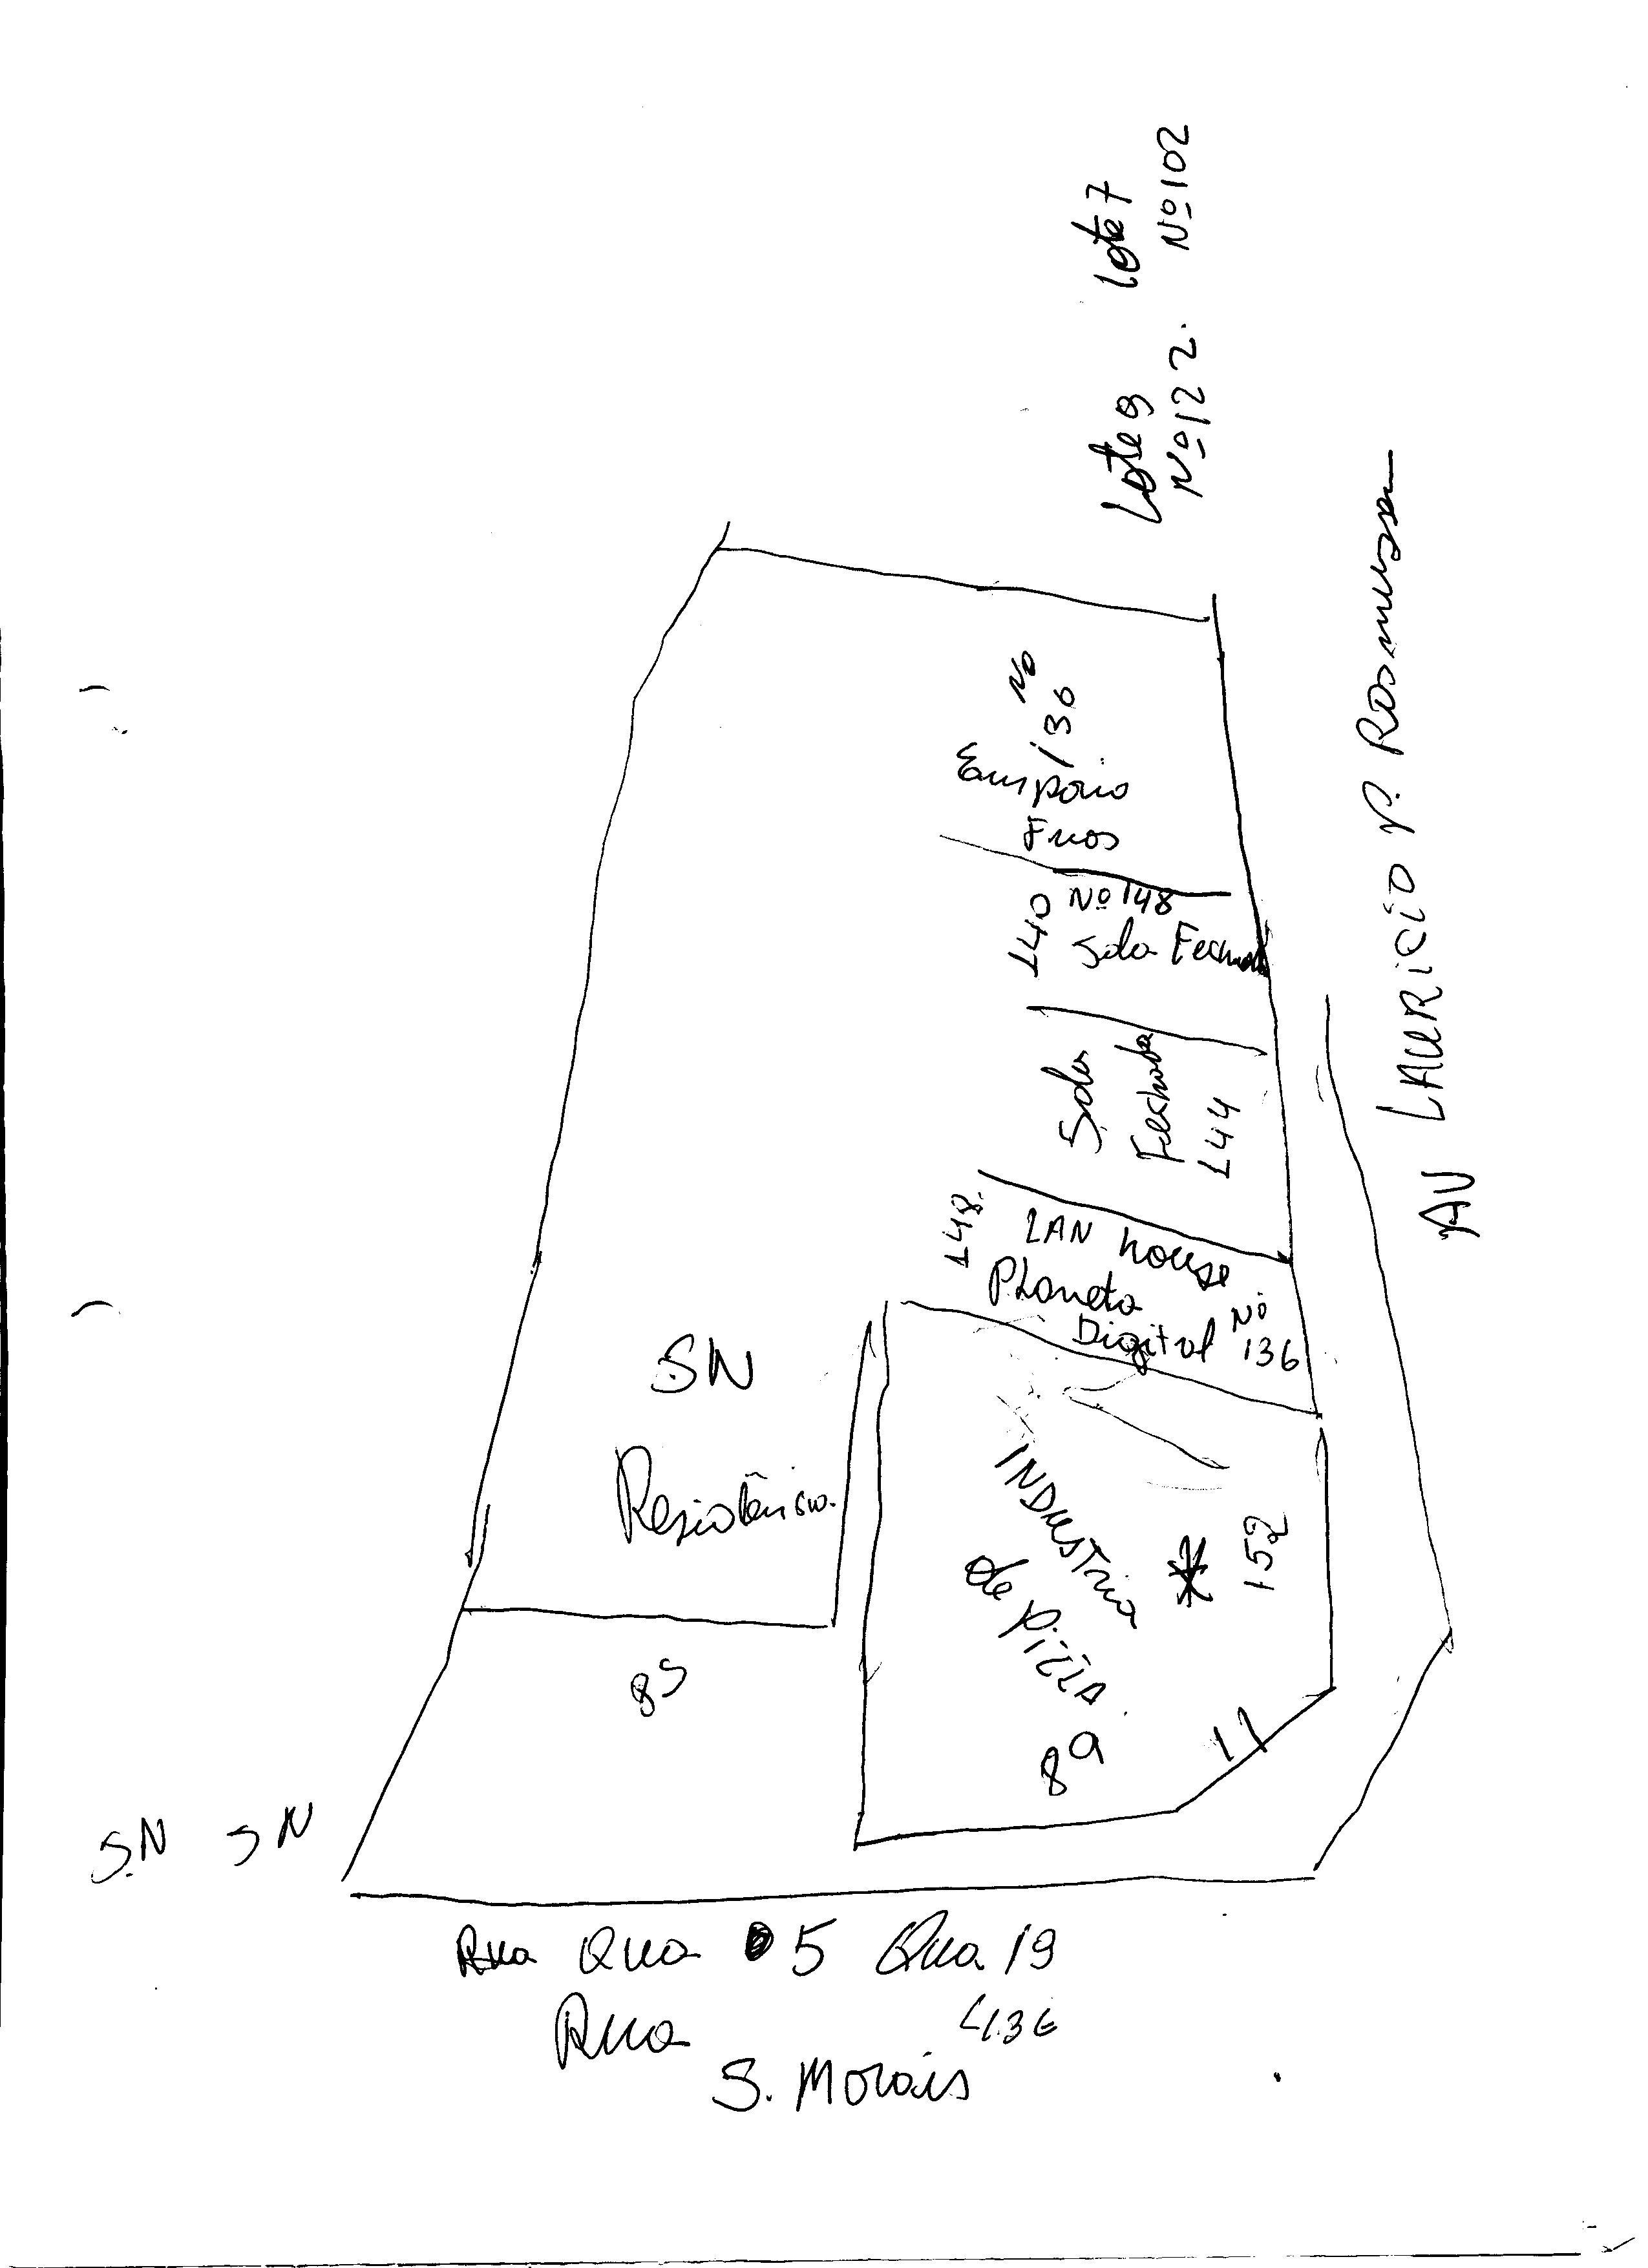 Lote 7
Nº 102
Lote 9
Nº 122.
AV LAURICIO P. Rasmussen
Nº
136
Emporio
Frios
140
Nº 148
Sala Fechada
Sala
Fechada
144
148.
LAN house
PLaneta
Digital Nº
136
SN
Residência.
INDUSTria
de PizzA
152
89
11
85
S.N SN
Rua Qua 5 Qua 19
Rua
S. Morais